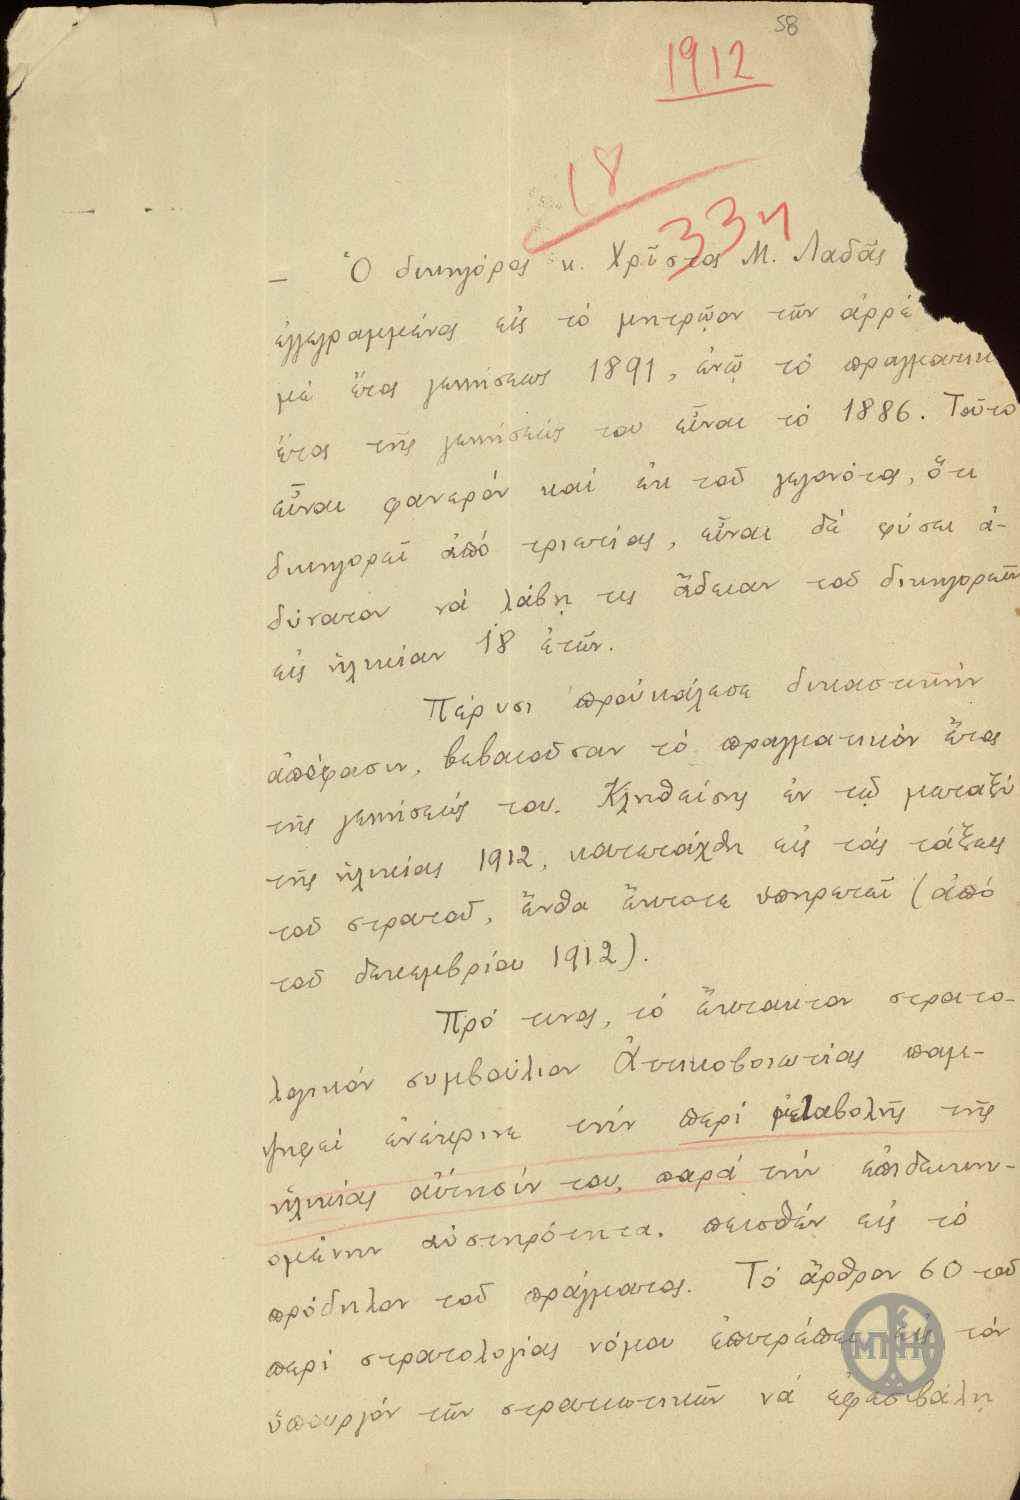 58
1912
18
33η
— Ὁ δικηγόρος κ. Χρῖστος Μ. Λαδᾶς
ἐγγεγραμμένος εἰς τό μητρῷον τῶν ἀρρέ
μέ ἔτος γεννήσεως 1891, ἐνῷ τό πραγματικ
ἔτος τῆς γεννήσεώς του εἶναι τό 1886. Τοῦτο
εἶναι φανερόν καί ἐκ τοῦ γεγονότος, ὅτι
δικηγορεῖ ἀπό τριετίας, εἶναι δέ φύσει ἀ-
δύνατον νά λάβῃ τις ἄδειαν τοῦ δικηγορεῖν
εἰς ἡλικίαν 18 ἐτῶν.
Πέρυσι προὐκάλεσε δικαστικήν
ἀπόφασιν, βεβαιοῦσαν τό πραγματικόν ἔτος
τῆς γεννήσεώς του. Κληθείσης ἐν τῷ μεταξύ
τῆς ἡλικίας 1912, κατετάχθη εἰς τάς τάξεις
τοῦ στρατοῦ, ἔνθα ἔκτοτε ὑπηρετεῖ (ἀπό
τοῦ δεκεμβρίου 1912).
Πρό τινος, τό ἔκτακτον στρατο-
λογικόν συμβούλιον Ἀττικοβοιωτίας παμ-
ψηφεί ἐνέκρινε τήν περί μεταβολῆς τῆς
ἡλικίας αὔτησίν του, παρά τήν ἐπιδεικνυ-
ομένην αὐστηρότητα, πεισθέν εἰς τό
πρόδηλον τοῦ πράγματος. Τό ἄρθρον 60 τοῦ
περί στρατολογίας νόμου ἐπιτρέπει εἰς τόν
ὑπουργόν τῶν στρατιωτικῶν νά ἐφεσιβάλῃ